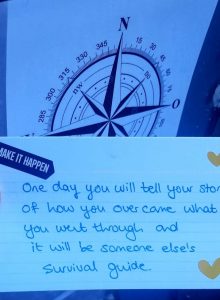 N
345
330
315
300
285
15
30
45
NW
O
MAKE IT HAPPEN
One day you will tell your stor
of how you overcame what
you went through and
it will be someone else's
survival guide.